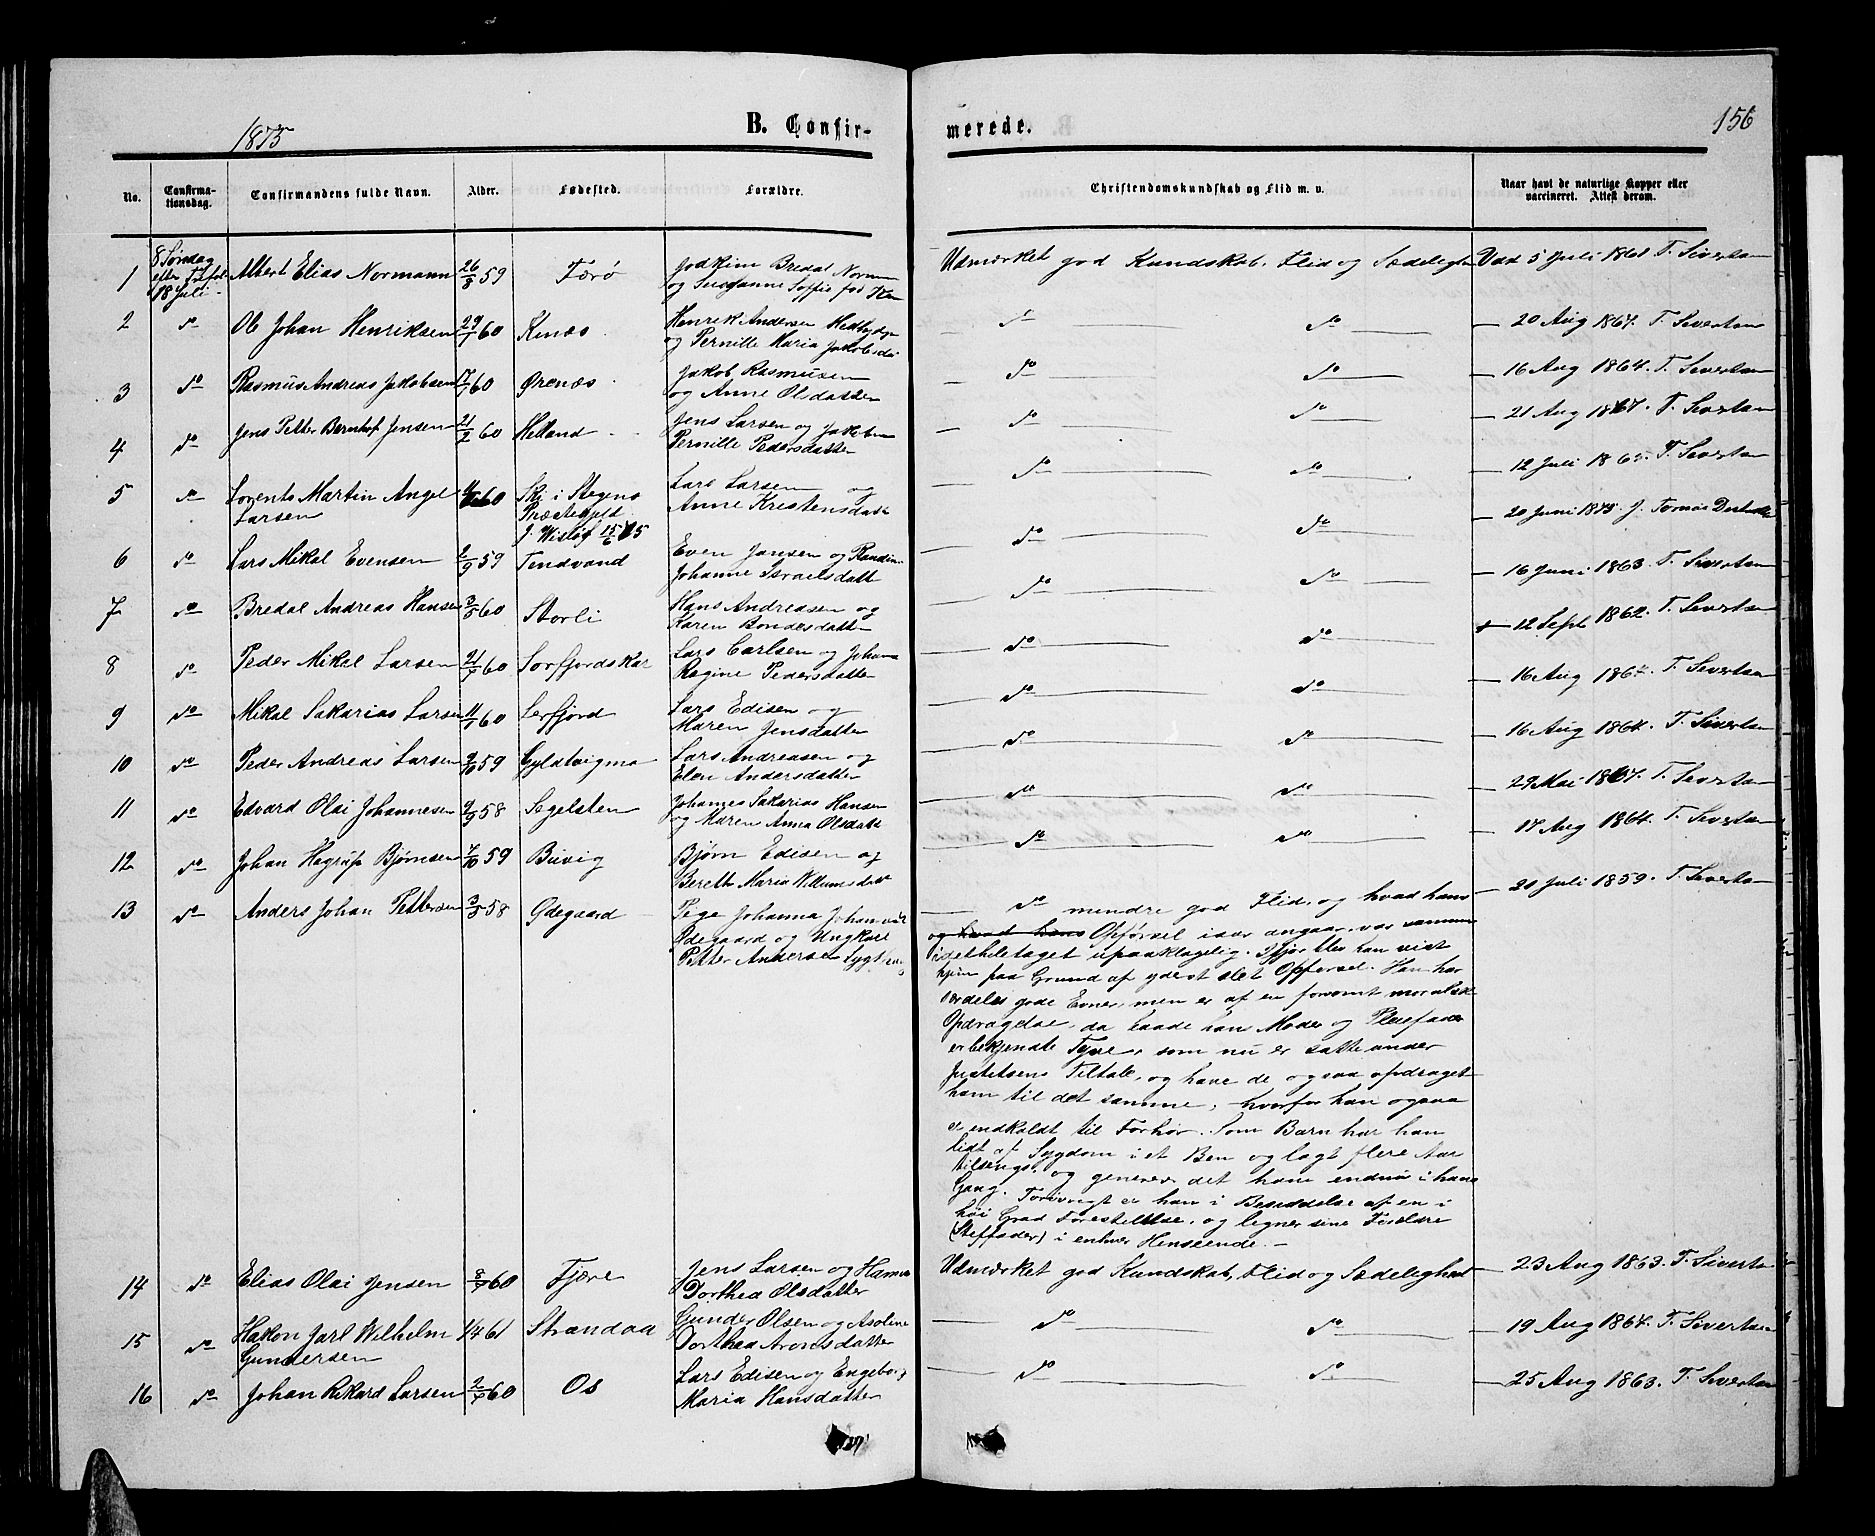 1875
B. Confir-
merede.
156
No.
Confirma-
tionsdag.
Confirmandens fulde Navn.
Alder.
Fødested.
Forældre.
Christendomskundskab og Flid m. v.
Naar havt de naturlige Kopper eller
vaccineret. Attest derom.
1 8 Søndag efter 18 Juli Albert Elias Normann 26/8 59 Færø
og Susanne Soffie fød
Udmærket god Kundskab, Flid og Sædelighed 5 Juli 1861 T. Sivertsen
2 do Ole Johan Henriksen 29/1 60 Kinæs Henrik Andersen
og Pernille Maria Jakobsd
do do 20 Aug 1864. T. Sivertsen
3 do Rasmus Andreas Jakobsen 17/1 60 Ørenæs Jakob Rasmusen
og Anne Olsdatter
do do 16 Aug 1864. T. Sivertsen
4 do Jens Petter Bernhof Jensen 21/2 60 Helland Jens Larsen og
Pernille Pedersdatter
do do 21 Aug 1867. T. Sivertsen
5 do Lorents Martin Angel 60 Ski i Stegens Lars Larsen og
Larsen Præstegjeld Anne Kristensdatt
J. Wisløf 15/6 75
do do 12 Juli 1865. T. Sivertsen
6 do Lars Mikal Evensen 2/9 59 Tendvand Even Jansen og Randin
Johanne Israelsdatt
do do 20 Juni 1875. J.
7 do Bredal Andreas Hansen 3/5 60 Storli Hans Andreasen og
Karen Bondesdatter
do do 16 Juni 1863. T. Sivertsen
8 do Peder Mikal Larsen 21/7 60 Sorfjordskar Lars Carlsen og Johana
Regine Pedersdatter
do do 12 Sept 1862. T. Sivertsen
9 do Mikal Sakarias Larsen 11/1 60 Lerfjord Lars Edisen og
Maren Jensdatter
do do 16 Aug 1864. T. Sivertsen
10 do Peder Andreas Larsen 9/10 59 Gyldtvigmo Lars Andreasen og
Elen Andersdatter
do do 16 Aug 1864. T. Sivertsen
11 do Edvard Olai Johannesen 9/9 58 Sægelsten Johannes Sakarias Hansen
og Maren Anna Olsdatt
do do 29 Mai 1867. T. Sivertsen
12 do Johan Hagrup Bjørnsen 7/10 59 Buvig Bjørn Edisen og
Bereth Maria Willumsdatt
do do 17 Aug 1864. T. Sivertsen
13 do Anders Johan Pettersen 3/5 58 Ødegaard Pige Johanna
Ødegaard og Ungkarl
Petter Andersen
do mindre god Flid, og hvad hans 20 Juli 1859. T. Sivertsen
og hvad hans Opførsel især angaar, var
idetheletaget upaaklagelig. Ifjor blev han vist
hjem paa Grund af yderst slet Opførsel. Han har
særdeles gode Evner, men er af en forsømt moralsk
Opdragelse, da baade han Moder og Pleiefader
er bekjendte Tyve, som nu er satte under
Justitsens Tiltale, og have de ogsaa opdraget
ham til det samme, hvorfor han ogsaa
er indkaldt til Forhør. Som Barn har han
lidt af Sygdom i et Ben og lagt flere Aar
tilsengs, og generer det ham endnu i hans
Gang. Forøvrigt er han i Besiddelse af en i
høi Grad Forestillelse, og ligner sine Forældre
(Steffader) i enhver Henseende. —
14 do Elias Olai Jensen 60 Fjære Jens Larsen og Hanna
Dorthea Olsdatter
Udmærket god Kundskab, Flid og Sædelighed 23 Aug 1863. T. Sivertsen
15 do Hakon Jarl Wilhelm 1/4 61 Strandaa Gunder Olsen og Asoline
Gundersen Dorthea Aronsdatter
do do 19 Aug 1864. T. Sivertsen
16 do Johan Rikard Larsen 2/7 60 Os Lars Edisen og Engeborg
Maria Hansdatter
do do 25 Aug 1863. T. Sivertsen